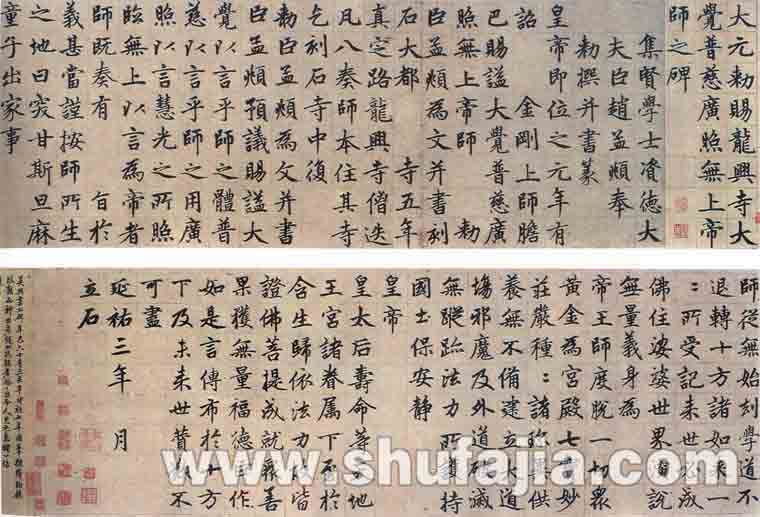 大元敕賜龍興寺大
覺普慈廣照無上帝
師之碑
集賢學士資德大
夫臣趙孟頫奉
敕撰并書篆
皇帝即位之元年有
詔金剛上師膽
巴賜謚大覺普慈廣
照無上帝師敕
臣孟頫為文并書刻
石大都寺五年
真定路龍興寺僧迭
凡八奏師本住其寺
乞刻石寺中復
敕臣孟頫為文并書
臣孟頫預議賜謚大
覺以言乎師之體普
慈以言乎師之用廣
照以言慧光之所照
臨無上以言為帝者
師既奏有旨於
義甚當謹按師所生
之地曰突甘斯旦麻
童子出家事
師從無始刧學道不
退轉十方諸如來一
二所受記來世必成
佛住娑婆世界演說
無量義身為
帝王師度脫一切眾
黃金為宮殿七寶妙
莊嚴種二諸珎異供
養無不備建立大道
場邪魔及外道破滅
無蹤跡法力所護持
國土保安靜
皇帝
皇太后壽命等天地
王宮諸眷属下至於
含生歸依法力故皆
證佛菩提成就眾善
果獲無量福德臣作
如是言傳布於十方
下及未来世贊歎不
可盡
延祐三年月
立石
www.shufajia.com